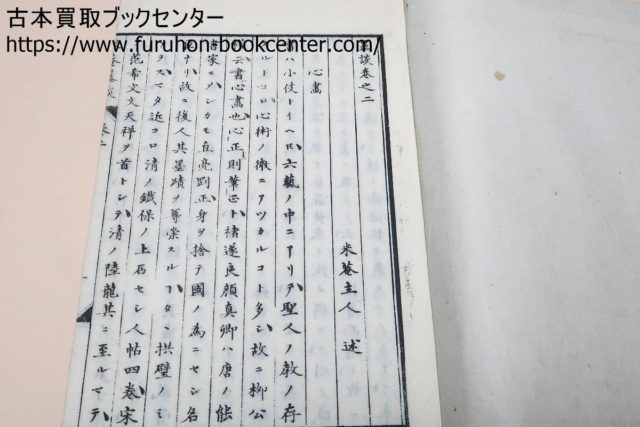 古本買取ブックセンター
https://www.furuhon-bookcenter.com/
談卷之二
心畫
米菴主人述
書ハ小伎トイヘ𪜈六藝ノ中ニアリテ聖人ノ教ノ存
スルトコロ心術ノ徴ニアツカルコト多シ故ニ柳公
權云書心畫也心正則筆正ト褚遂良顏真卿ハ唐ノ能
書家ニメシカモ直亮剛正身ヲ捨テ國ノ為ニセシ名
臣ナリ故ニ後人其墨蹟ヲ尊崇スルヿタン拱璧ノミ
ナラスマタ近コロ清ノ鐵保ノ上石セシ人帖四卷宋
范希文文天祥ヲ首トシテ清ノ陸龍其ニ至ルマテ